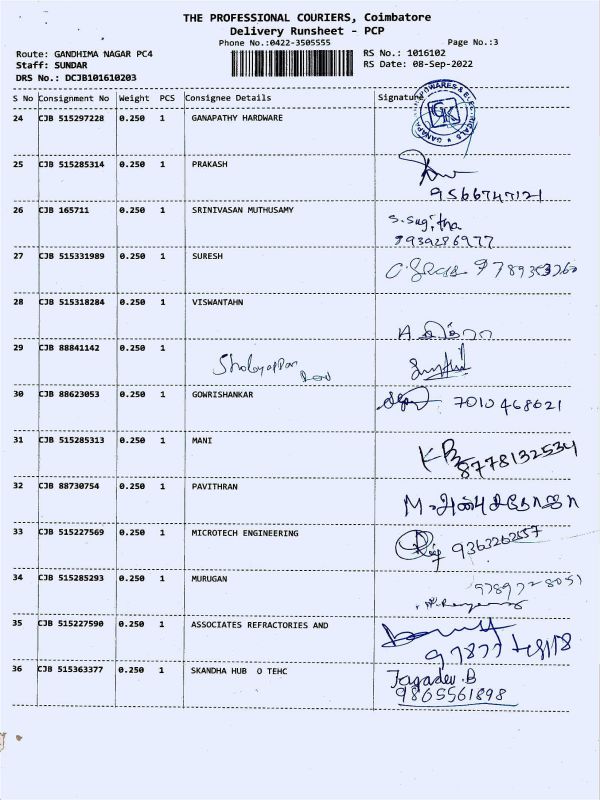 THE PROFESSIONAL COURIERS, Coimbatore
Delivery Runsheet - PCP
Phone No.:0422-3505555 Page No.:3
Route: GANDHIMA NAGAR PC4 RS No.: 1016102
Staff: SUNDAR RS Date: 08-Sep-2022
DRS No.: DCJB101610203
S No Consignment No Weight PCS Consignee Details Signature
24 CJB 515297228 0.250 1 GANAPATHY HARDWARE
25 CJB 515285314 0.250 1 PRAKASH
9566747121
26 CJB 165711 0.250 1 SRINIVASAN MUTHUSAMY S.Sugitha
7939286977
27 CJB 515331989 0.250 1 SURESH
28 CJB 515318284 0.250 1 VISWANTAHN
29 CJB 88841142 0.250 1
30 CJB 88623053 0.250 1 GOWRISHANKAR 7010468621
31 CJB 515285313 0.250 1 MANI
8778132534
32 CJB 88730754 0.250 1 PAVITHRAN
33 CJB 515227569 0.250 1 MICROTECH ENGINEERING 9363262557
34 CJB 515285293 0.250 1 MURUGAN
35 CJB 515227590 0.250 1 ASSOCIATES REFRACTORIES AND
36 CJB 515363377 0.250 1 SKANDHA HUB O TEHC Jagadev.B
9865561898